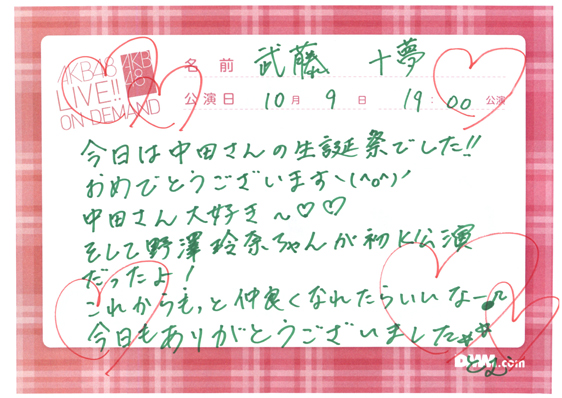 AKB48
LIVE!!
ON DEMAND
AKB
48
名前 武藤 十夢
公演日 10月 9日 19:00 公演
今日は中田さんの生誕祭でした!!
おめでとうございますヽ(^o^)ノ
中田さん大好き〜♡♡
そして野澤玲奈ちゃんが初K公演
だったよ!
これからも、と仲良くなれたらいいなー♫
今日もありがとうございました**
とむ
DMM.com